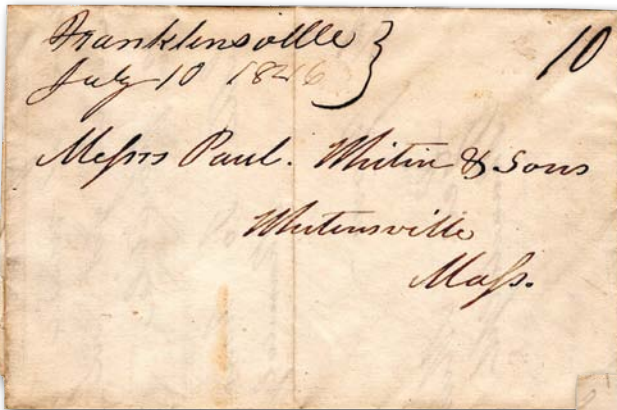 Franklensville }
10
July 10 1846
Messrs Paul. Whitin & Sons
Whitensville
Mass.